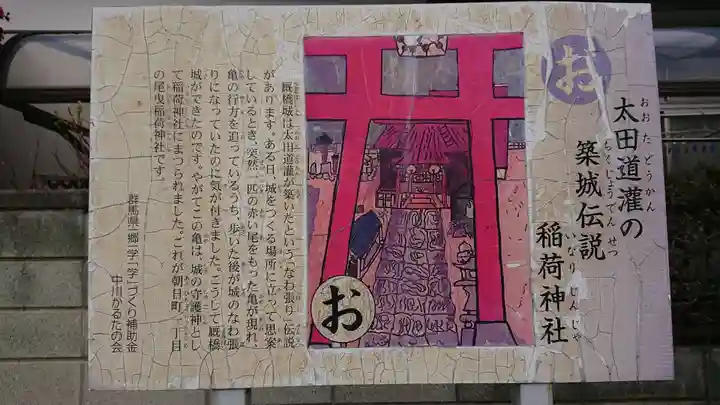 お
太田道灌の
おおたどうかん
築城伝説
ちくじょうでんせつ
稲荷神社
いなりじんじゃ
お
厩橋城は太田道灌が築いたという「なわ張り」伝説
があります。ある日、城をつくる場所に立って思案
しているとき、突然一匹の赤い尾をもった亀が現れ、
亀の行方を追っているうち、歩いた後が城のなわ張
りになっていたのに気が付きました。こうして厩橋
城ができたのです。やがてこの亀は、城の守護神とし
て稲荷神社にまつられました。これが朝日町
丁目
の尾曳稲荷神社です。
群馬県一郷一学「学」づくり補助金
中川かるたの会